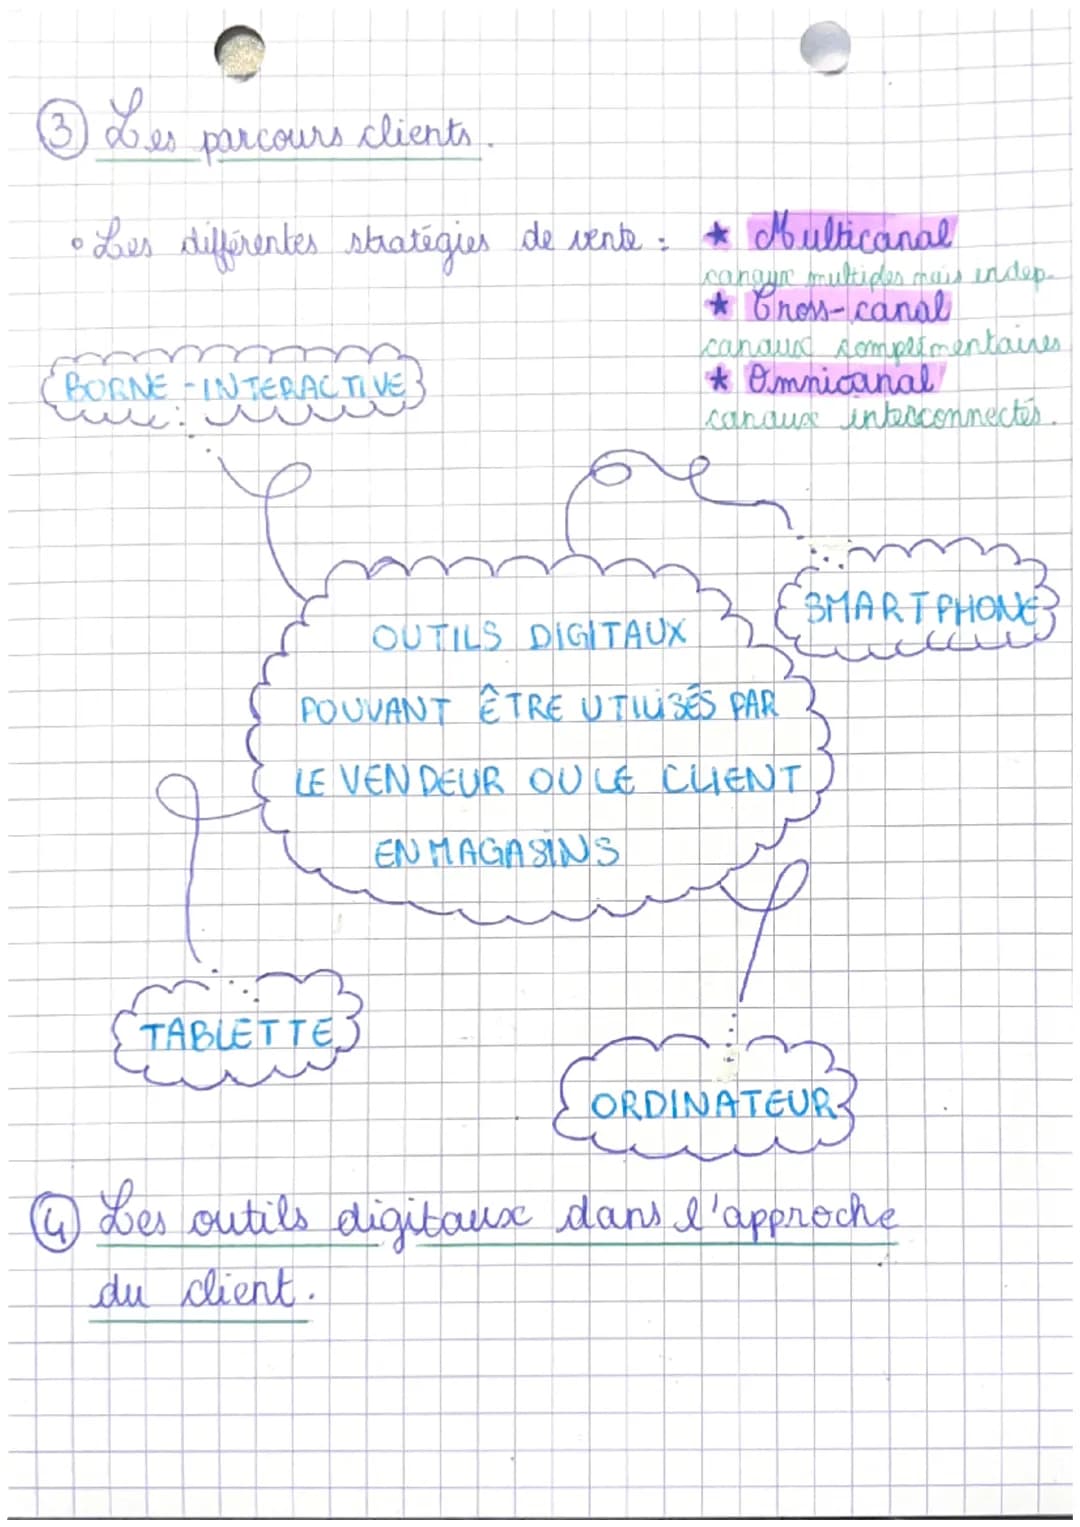 ③ Les parcours clients.
• Les différentes stratégies de vente : ★ Multicanal
canaux multiples mais indep.
★ Cross-canal
canaux complémentaires
★ Omnicanal
canaux interconnectés.
BORNE-INTERACTIVE
SMARTPHONE
OUTILS DIGITAUX
POUVANT ÊTRE UTILISÉS PAR
LE VENDEUR OU LE CLIENT
EN MAGASINS
TABLETTE
ORDINATEUR
④ Les outils digitaux dans l'approche
du client.